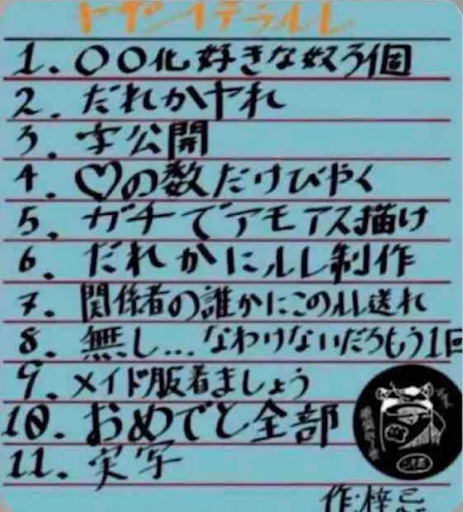 1. 〇〇化好きな奴3個
2. だれかヤれ
3. 字公開
4. ♡の数だけびやく
5. ガチでアモアス描け
6. だれかにルレ制作
7. 関係者の誰かにこのルレ送れ
8. 無し...なわけないだろもう1回
9. メイド服着ましょう
10. おめでと全部
11. 実写